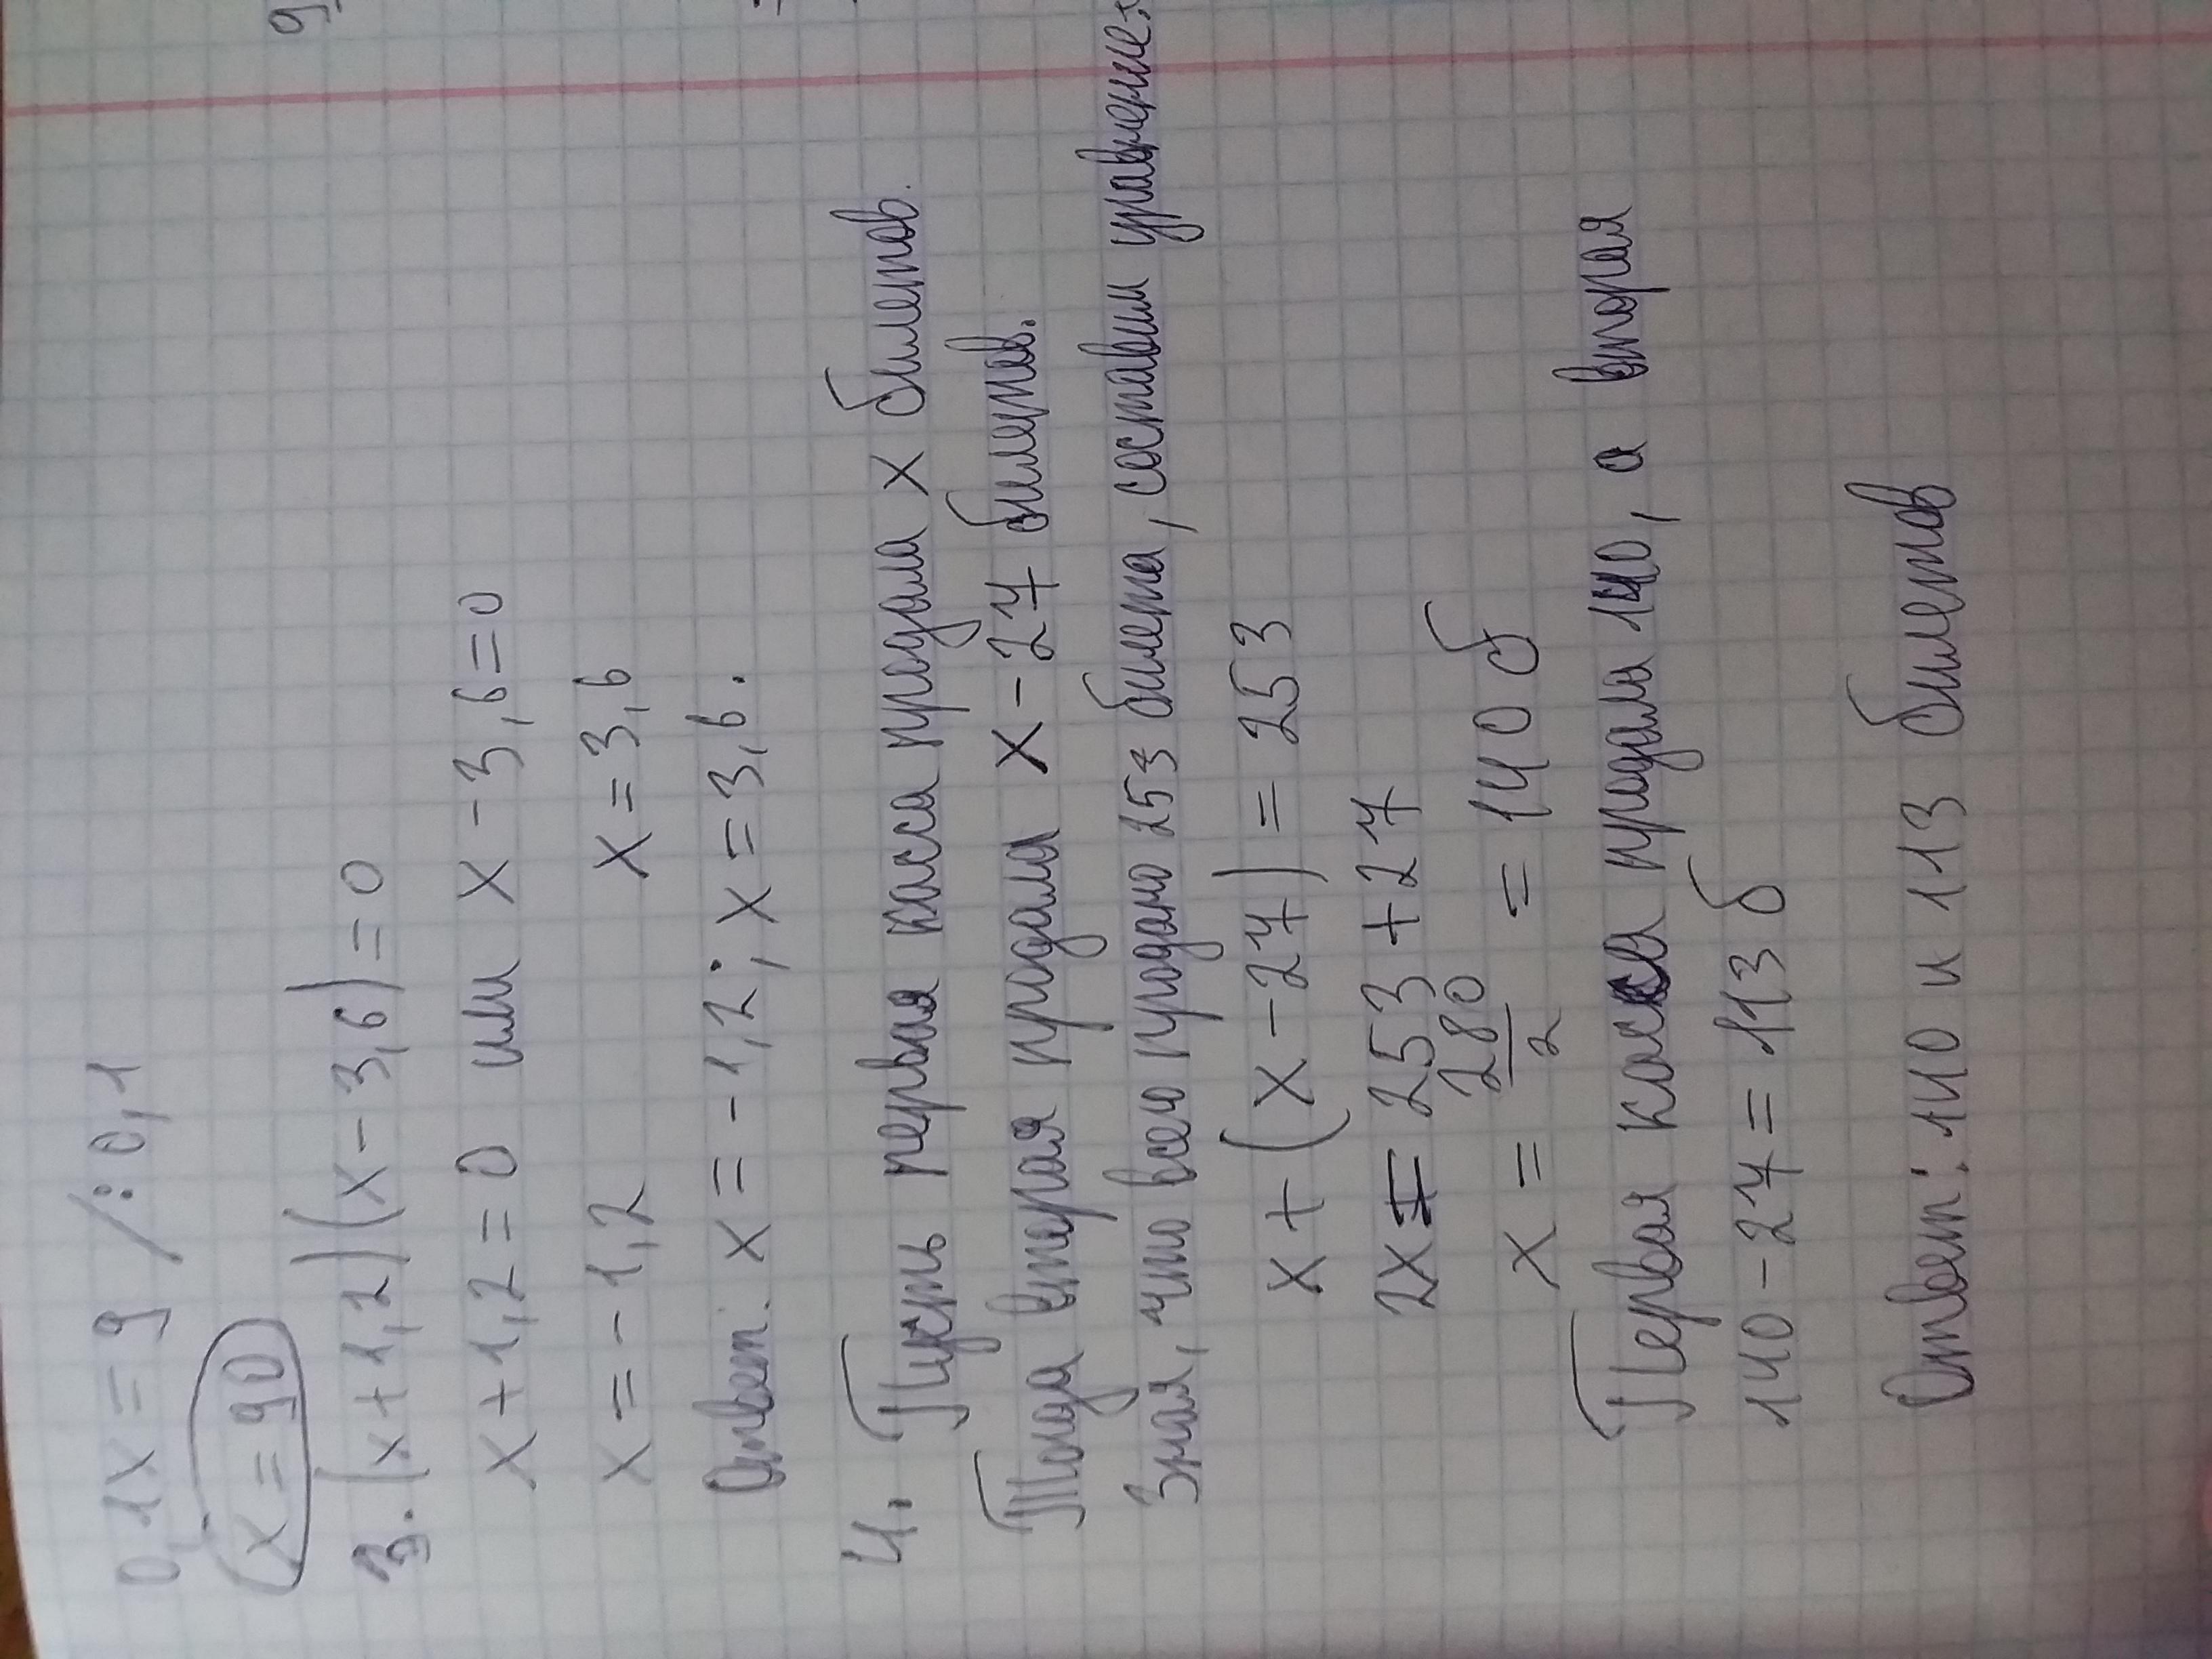 0,1x = 9 /:0,1
x = 90
3. (x+1,2)(x-3,6)=0
x+1,2=0 или x-3,6=0
x=-1,2 x=3,6
Ответ: x=-1,2; x=3,6.
4. Пусть первая касса продала x билетов.
Тогда вторая продала x-27 билетов.
Зная, что всего продано 253 билета, составим уравнение:
x+(x-27)=253
2x=253+27
x = 280/2 = 140 б
Первая касса продала 140, а вторая
140-27=113 б
Ответ: 140 и 113 билетов